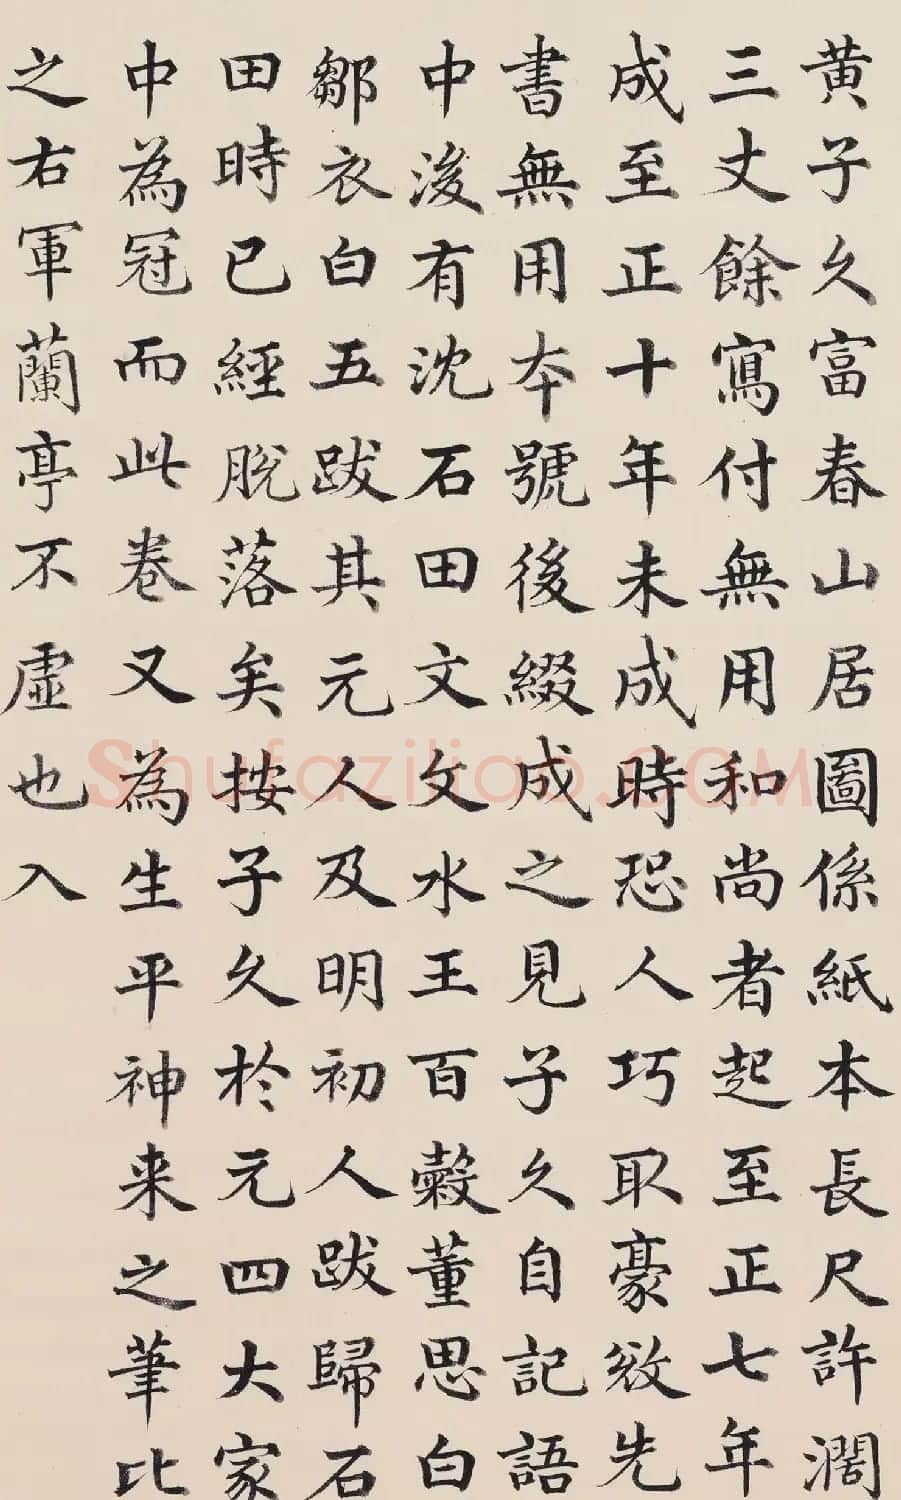 黄子久富春山居圖係紙本長尺許濶
三丈餘寫付無用和尚者起至正七年
成至正十年未成時恐人巧取豪敚先
書無用夲號後綴成之見子久自記語
中後有沈石田文文水王百穀董思白
鄒衣白五跋其元人及明初人跋歸石
田時已經脫落矣按子久於元四大家
中為冠而此卷又為生平神来之筆比
之右軍蘭亭不虛也入
Shufaziliao.COM